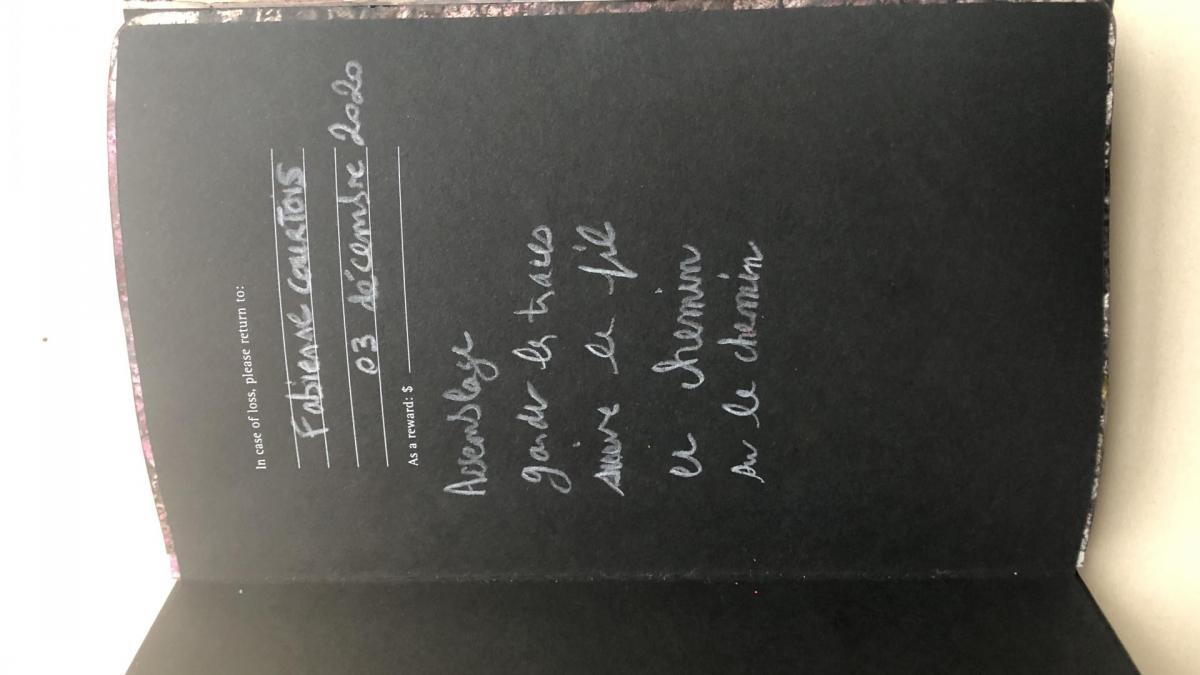 In case of loss, please return to:
Fabienne COURTOIS
03 décembre 2020
As a reward: $
Assemblage
garder les traces
suivre le fil
en chemin
sur le chemin